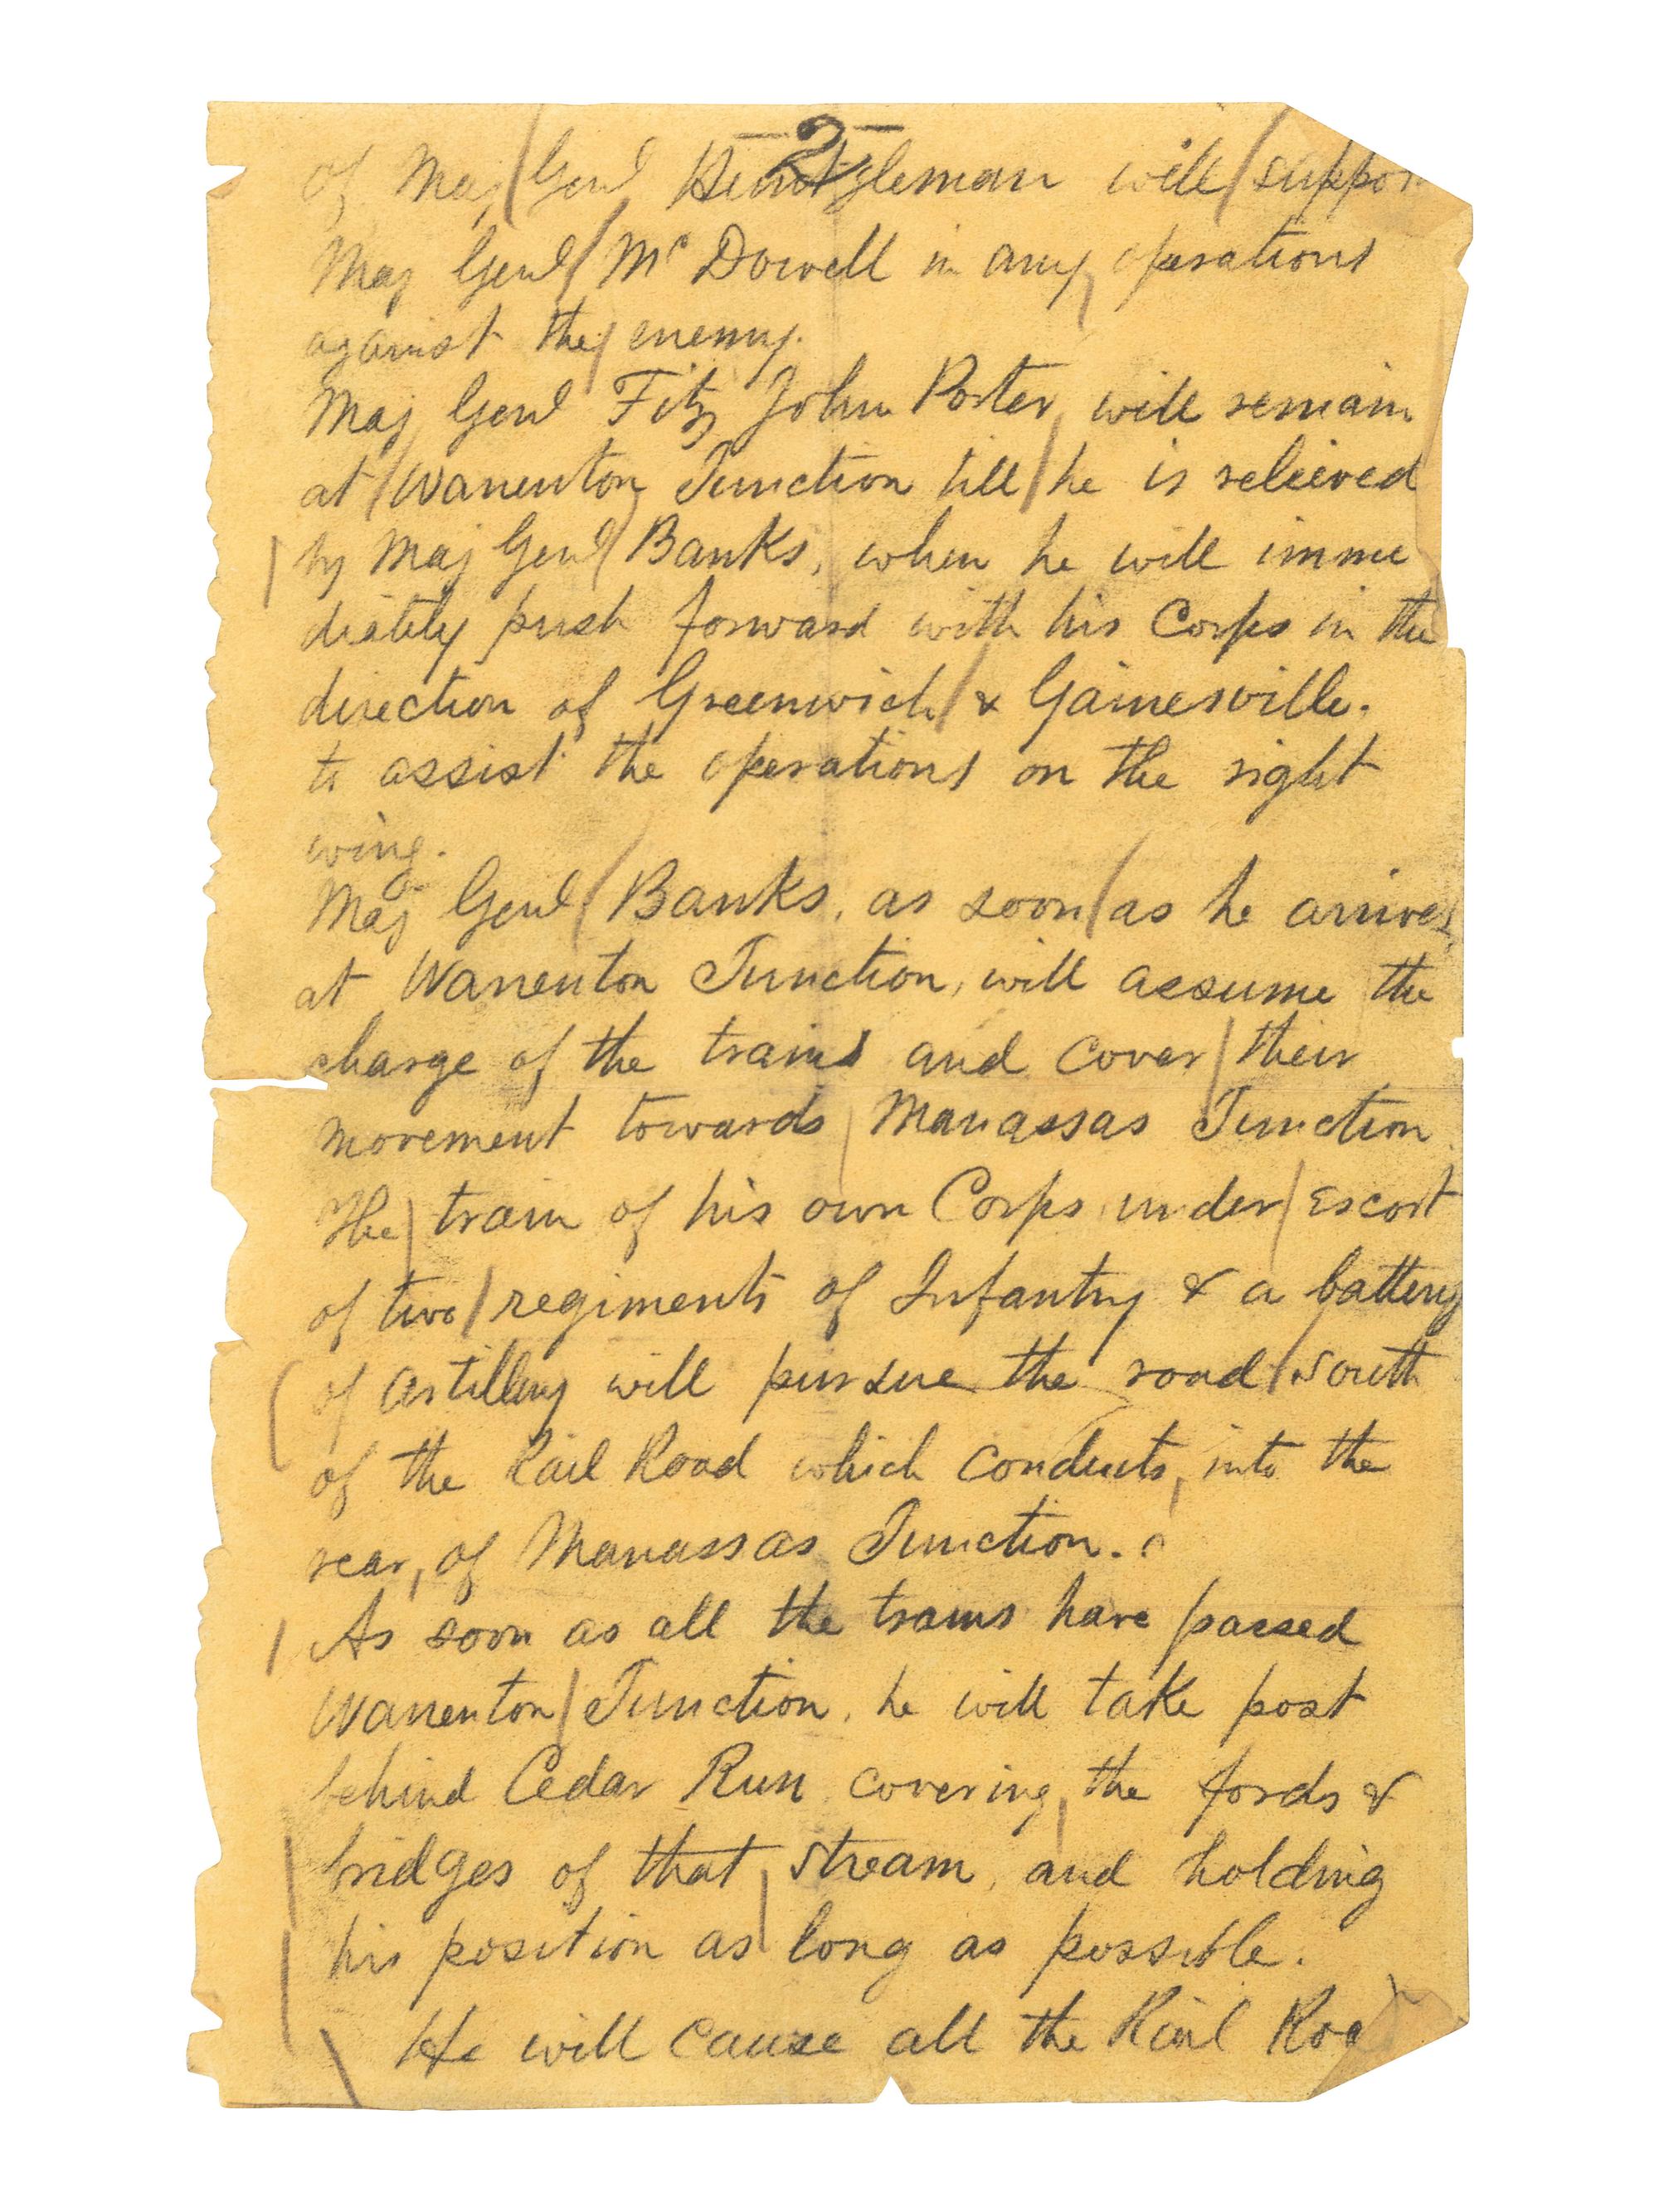 - 2 -
of Maj Genl Heintzleman will suppor
Maj Genl Mc Dowell in any operations
against the enemy.
Maj Genl Fitz John Porter will remain
at Warrenton Junction till he is relieved
by Maj Genl Banks, when he will imme
diately push forward with his Corps in the
direction of Greenwich & Gainesville.
to assist the operations on the right
wing.
Maj Genl Banks, as soon as he arrives
at Warrenton Junction, will assume the
charge of the trains and cover their
movement towards Manassas Junction.
The train of his own Corps under Escort
of two regiments of Infantry & a battery
of artillery will pursue the road South
of the Rail Road which conducts, into the
rear, of Manassas Junction.
As soon as all the trains have passed
Warrenton Junction, he will take post
behind Cedar Run covering the fords &
bridges of that stream, and holding
his position as long as possible.
He will cause all the Rail Roa